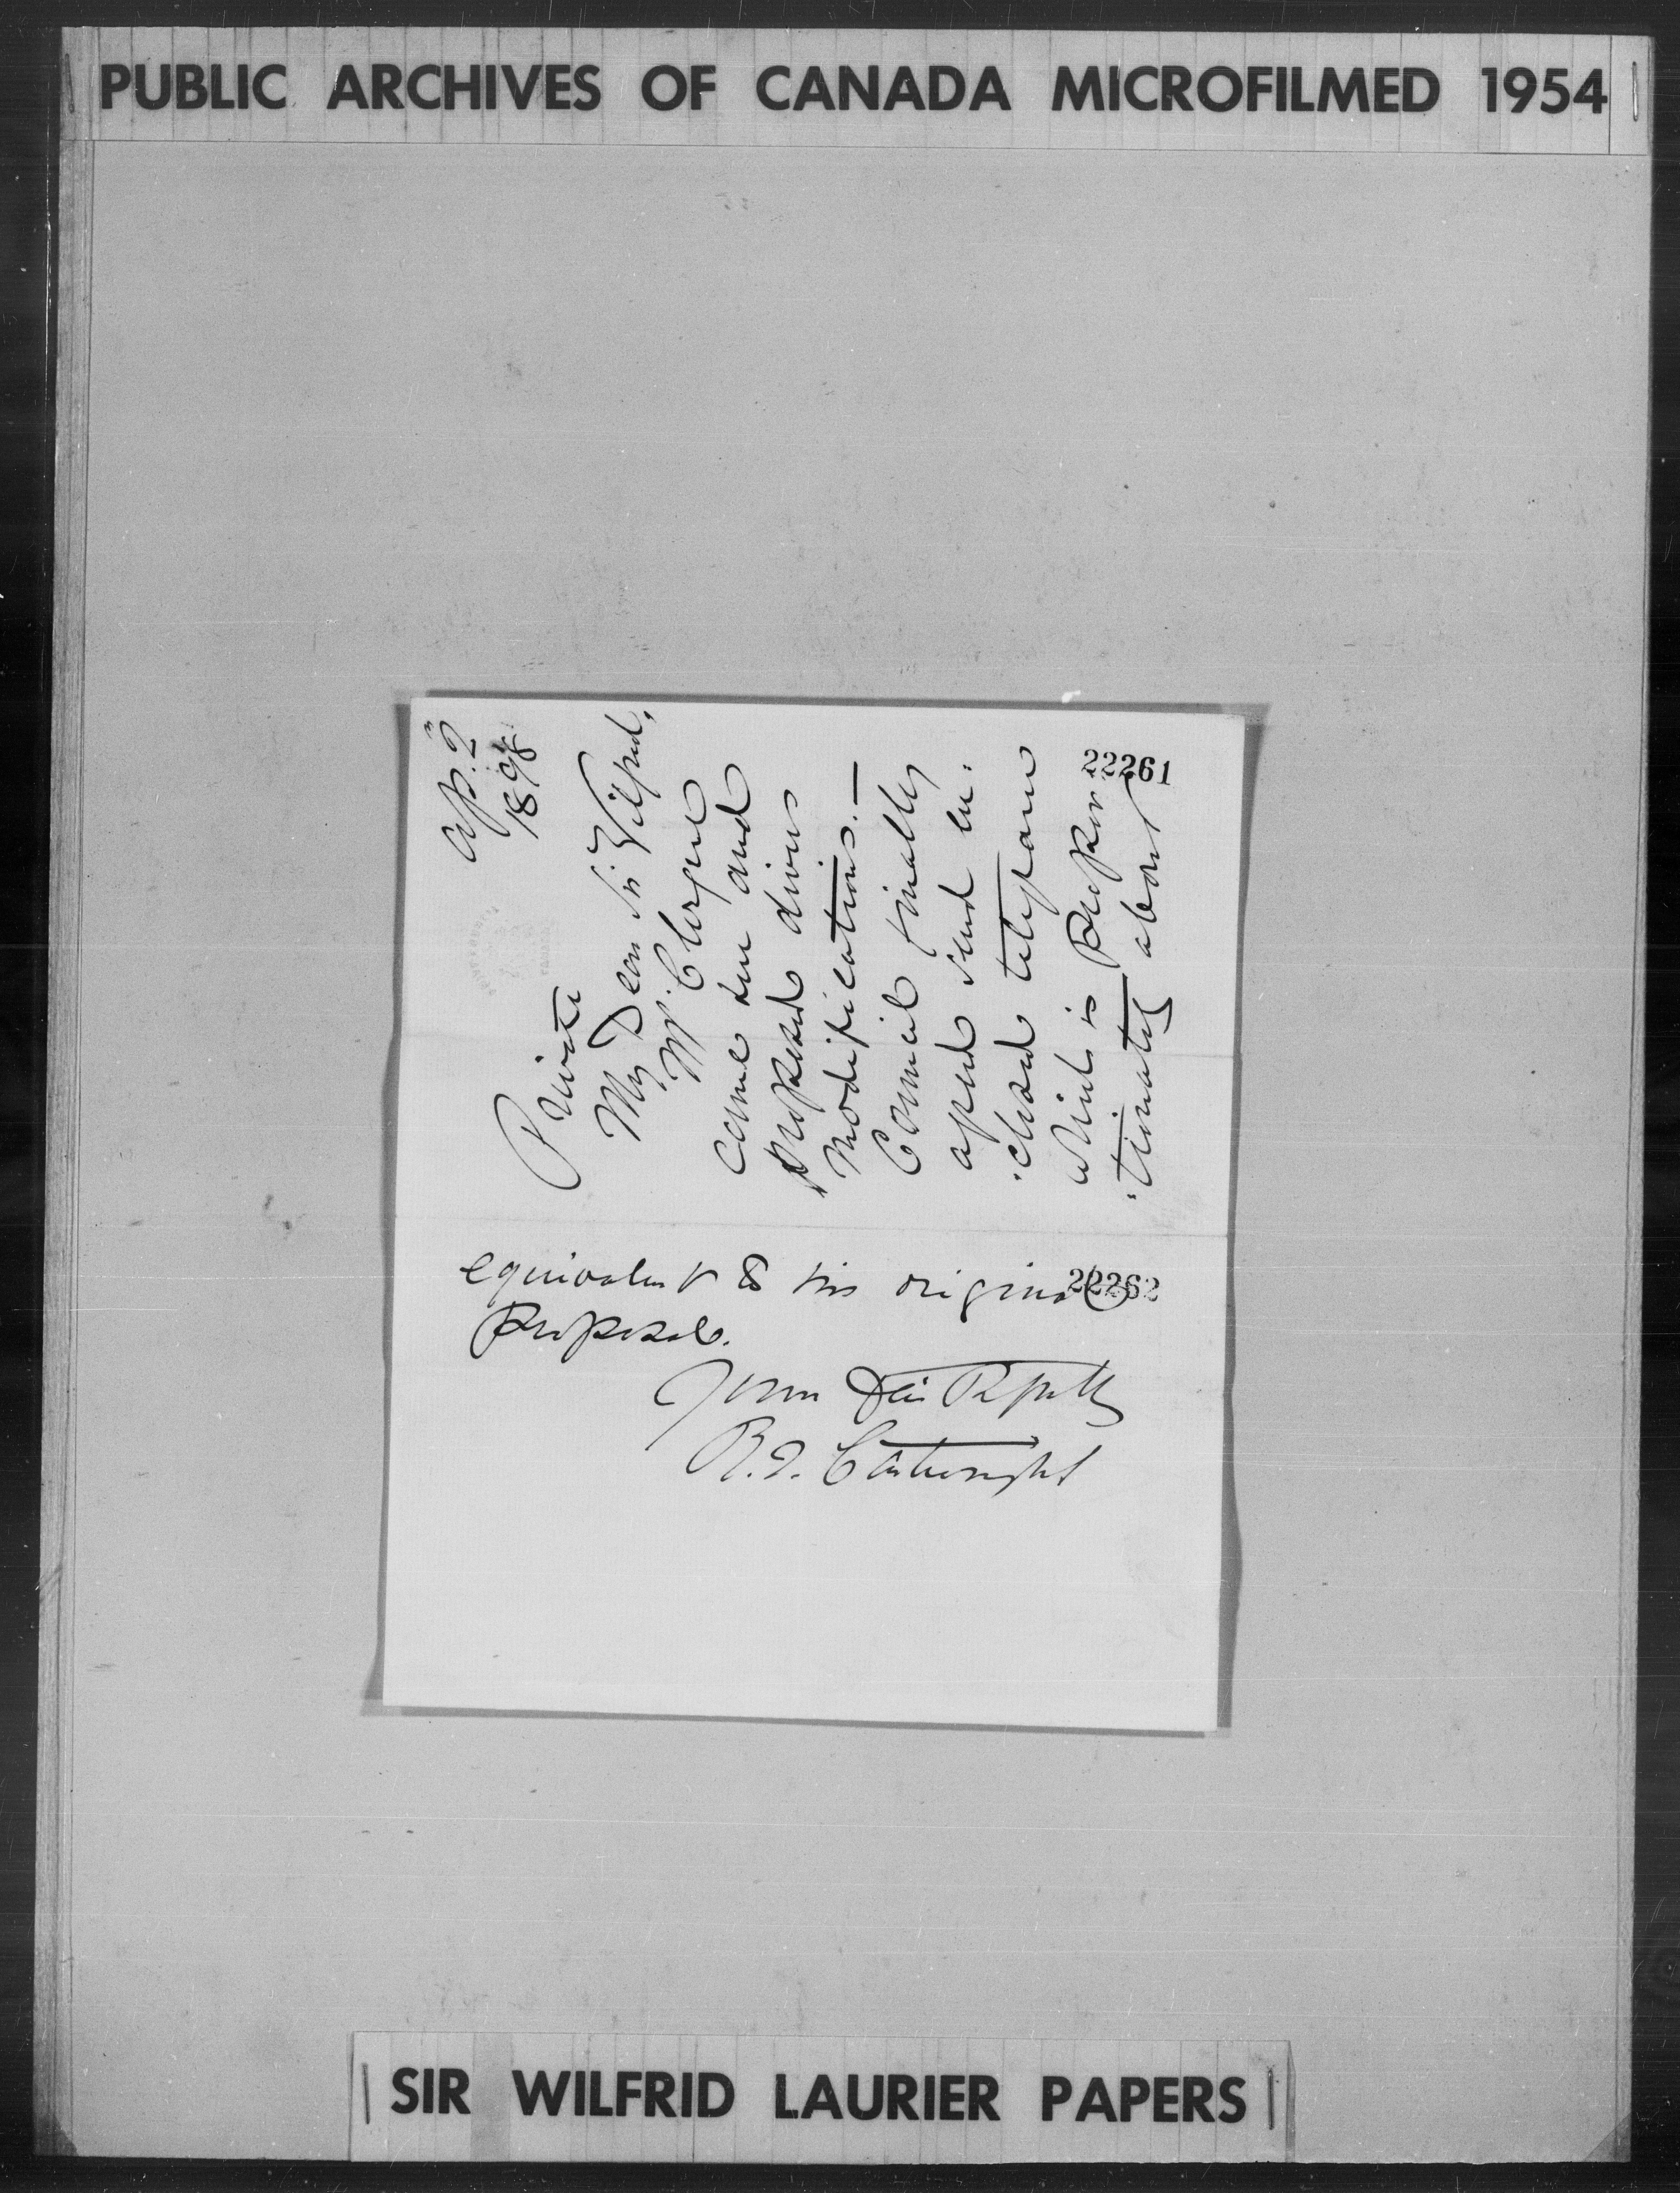 PUBLIC ARCHIVES OF CANADA MICROFILMED 1954
Ap. 2
1898
Private
My Dear Sir Wilfrid,
Mr. Clergue
came here and
proposed divers
modifications.—
Council finally
agreed send en-
-closed telegram
which is Proxim-
-imately about
22261
equivalent to his original
22262
Proposal.
Yours Faithfully
R.J. Cartwright
SIR WILFRID LAURIER PAPERS